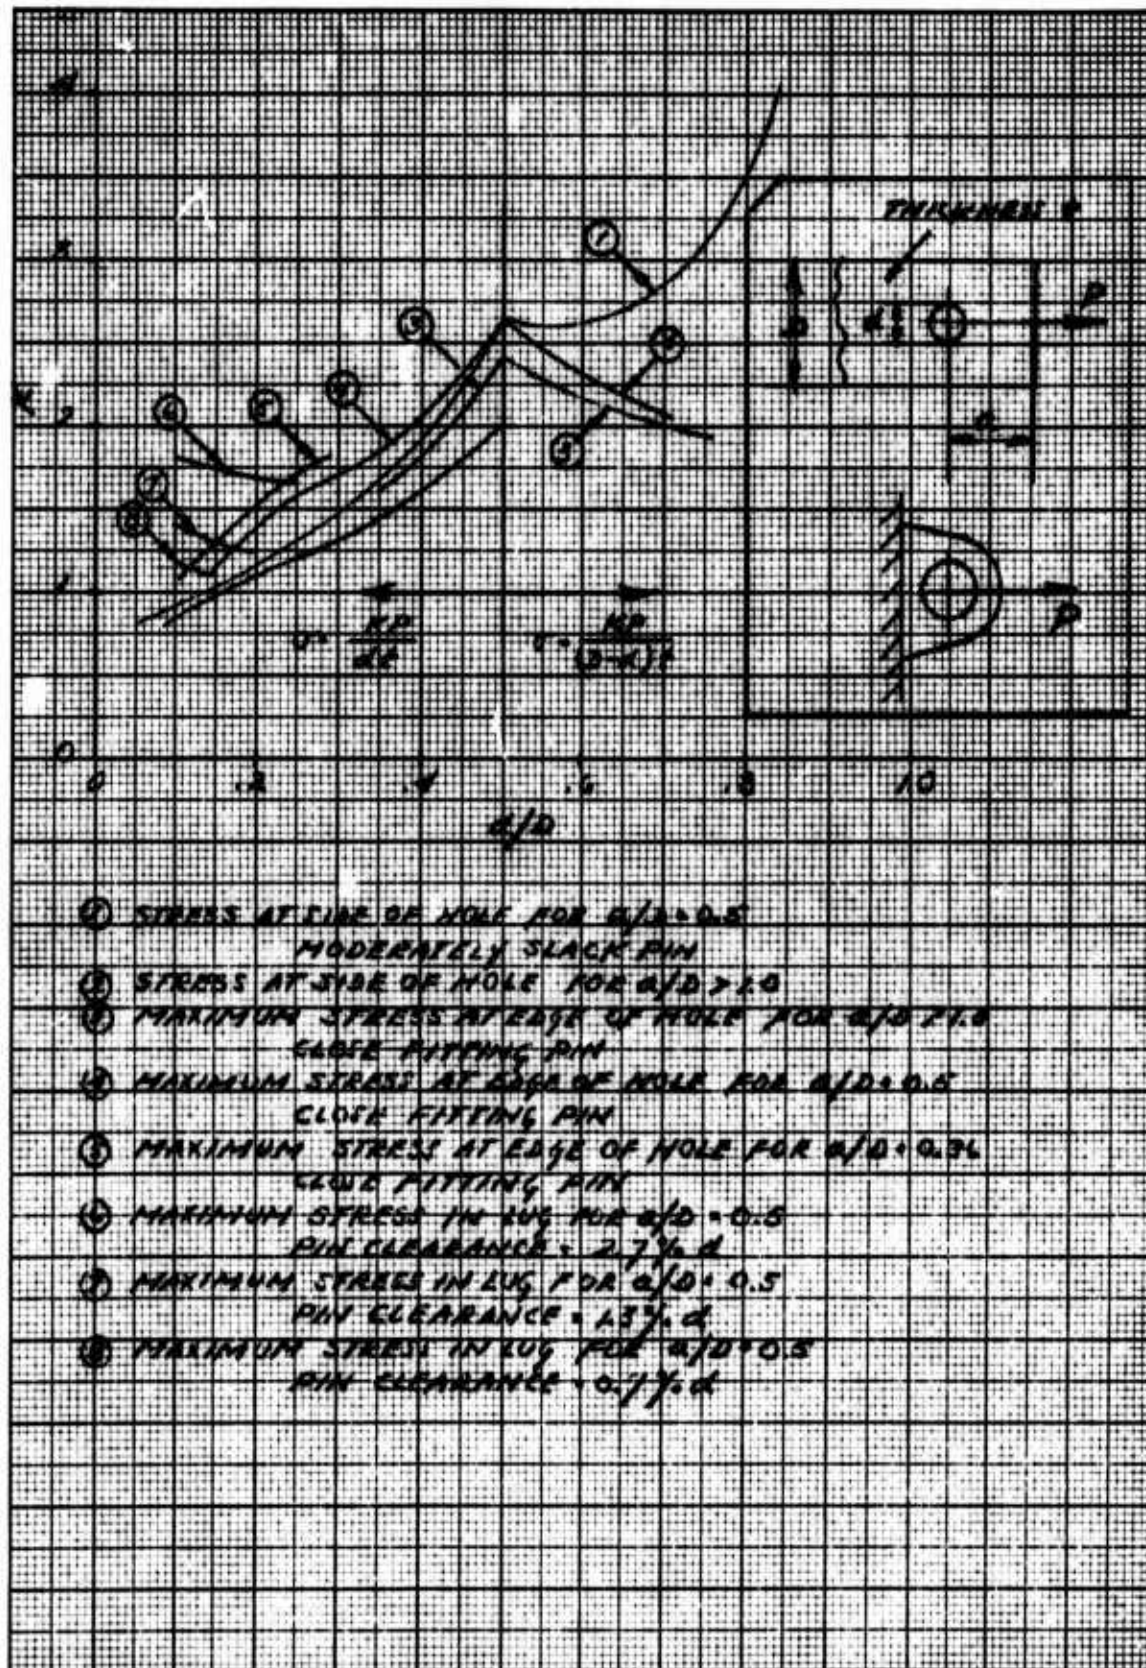 4
THICKNESS t
3
①
③
P
D
d
④
K
2
⑥
⑤
a
⑦
⑧
1
σ = KP
dt
σ = KP
(D-d)t
P
0
0 .2 .4 .6 .8 1.0
d/D
STRESS AT SIDE OF HOLE FOR a/D = 0.5
MODERATELY SLACK PIN
STRESS AT SIDE OF HOLE FOR a/D > 1.0
MAXIMUM STRESS AT EDGE OF HOLE FOR a/D > 1.0
CLOSE FITTING PIN
④ MAXIMUM STRESS AT EDGE OF HOLE FOR a/D = 0.5
CLOSE FITTING PIN
⑤ MAXIMUM STRESS AT EDGE OF HOLE FOR a/D =
CLOSE FITTING PIN
⑥ MAXIMUM STRESS IN LUG FOR a/D = 0.5
PIN CLEARANCE = 2.7% d
⑦ MAXIMUM STRESS IN LUG FOR a/D = 0.5
PIN CLEARANCE = 1.3% d
⑧ MAXIMUM STRESS IN LUG FOR a/D = 0.5
PIN CLEARANCE = d